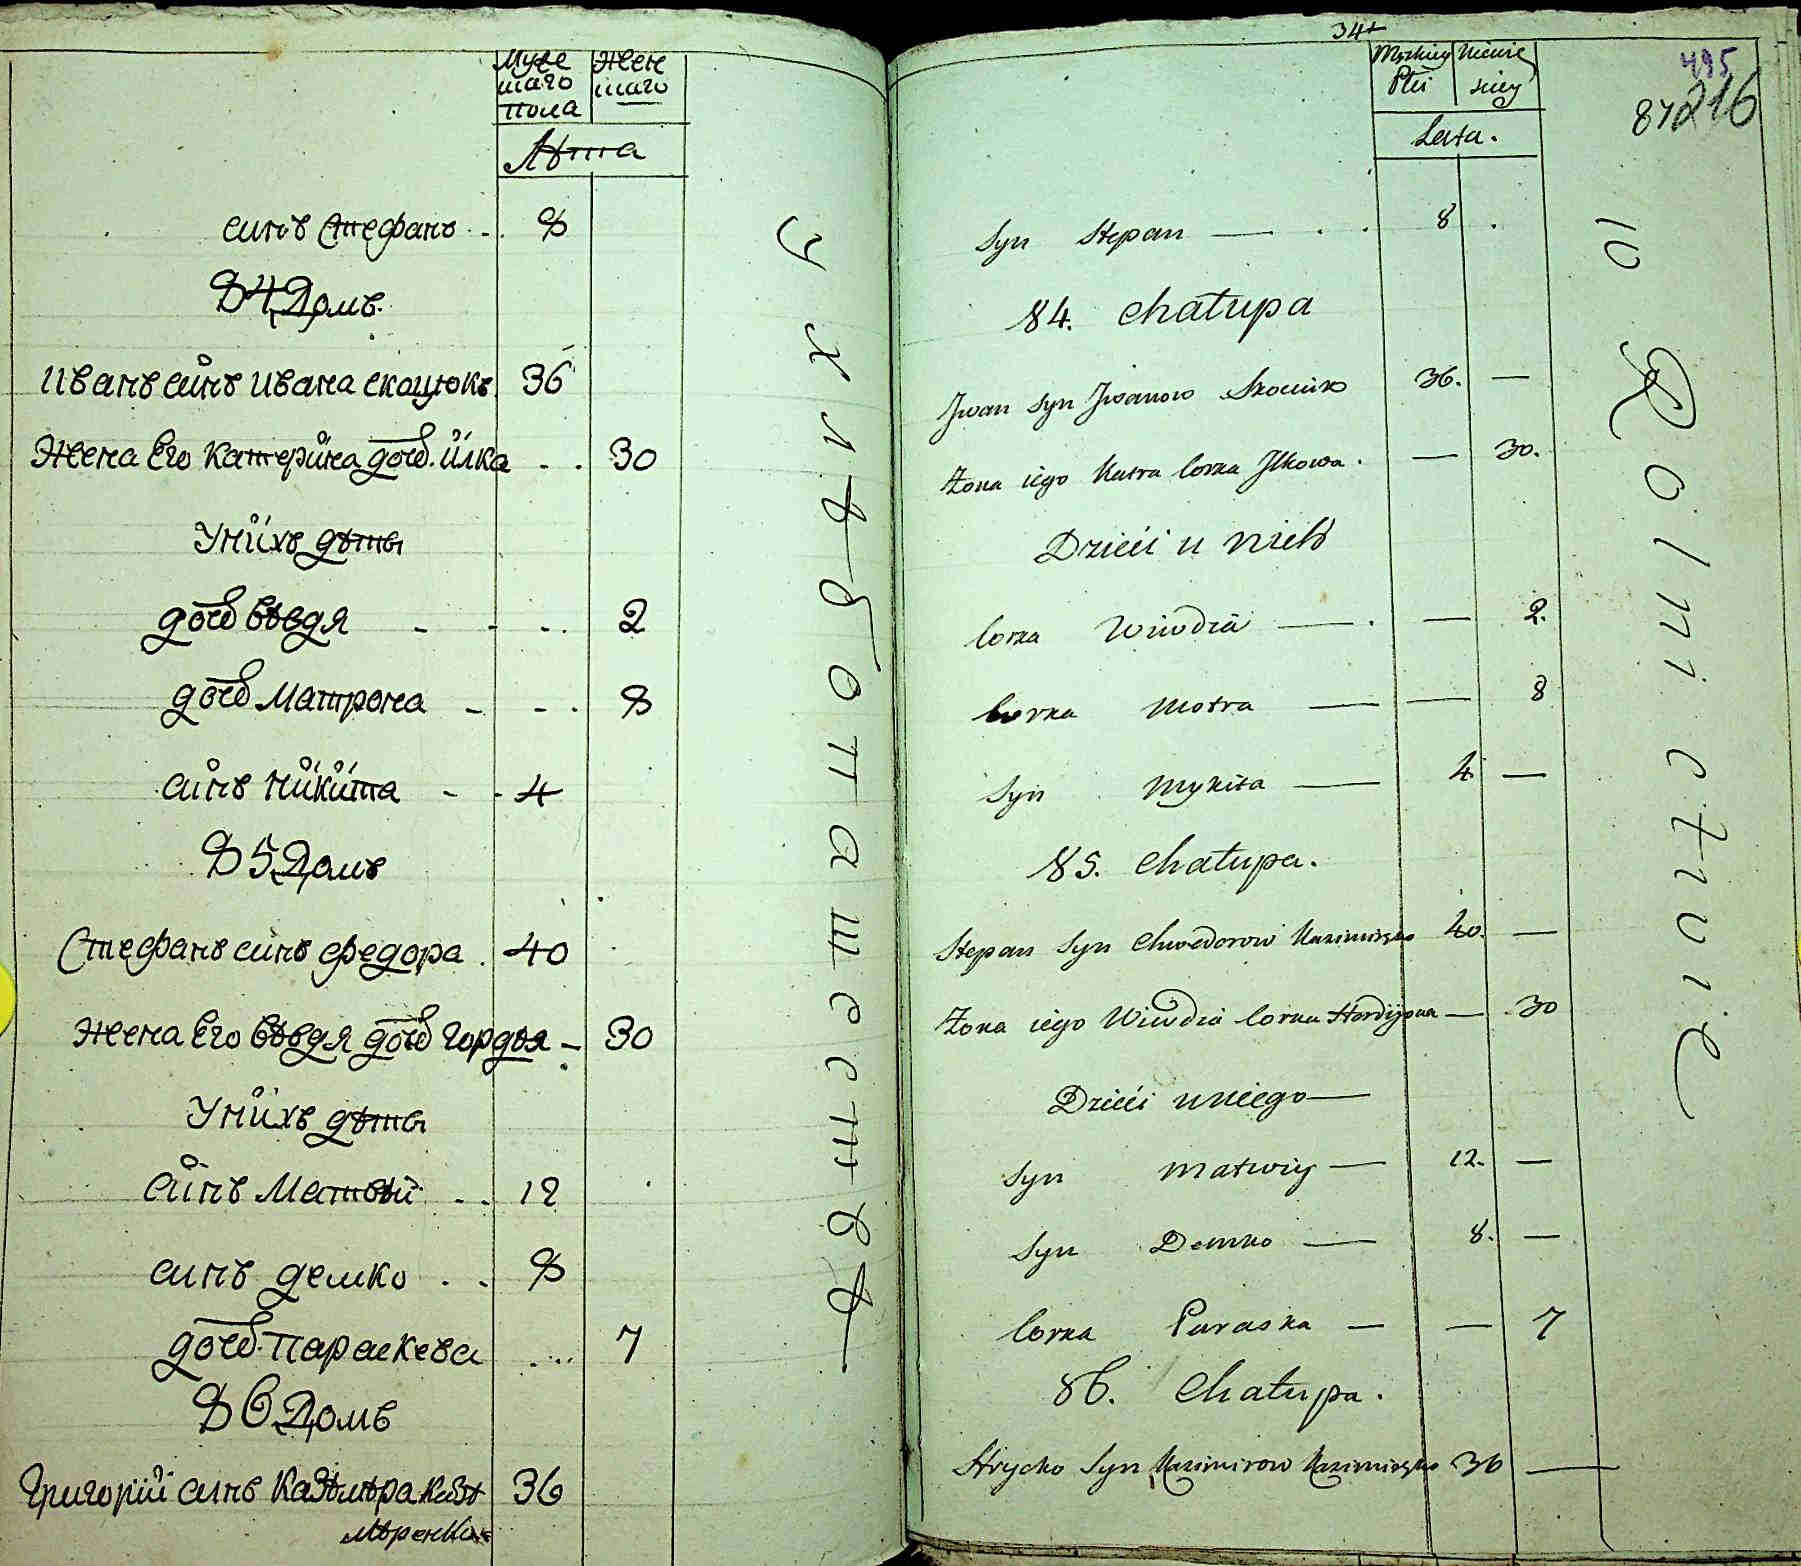 Муже
скаго
пола
Жен
скаго
Лѣта
синъ Стефанъ 8
84 Домъ.
Иванъ синъ Ивана Скоцюкъ 36
Жена Его Катерина дочь Илка 30
У нихъ дѣти
дочь Вѣвдя 2
дочь Матрона 8
синъ Никита 4
85 Домъ
Стефанъ синъ Федора 40
Жена Его Вѣвдя дочь Гордѣя 30
У нихъ дѣти
синъ Матвѣй 12
синъ Демко 8
дочь Параскева 7
86 Домъ
Григорій синъ Казѣмѣра Казѣ 36
мѣренко
У хлѣбопашествѣ
34+
Męzkiey
Płci
Lata.
495
87
216
Syn Stepan 8
84. Chałupa
Jwan Syn Jwanow Skociuk 36.
Żona iego Katra Corka Jlkowa. 30.
Dzieci u nich
Corka Wiwdia 2.
Corka Motra 8
Syn Mykita 4
85. Chałupa.
Stepan Syn Chwedorow 40.
Żona iego Wiwdia Corka Hordijowa 30
Dzieci u niego
Syn Matwiy 12.
Syn Demko 8.
Corka Paraska 7
86. Chałupa.
Hrycko Syn Kazimirow 36
w Rolnictwie